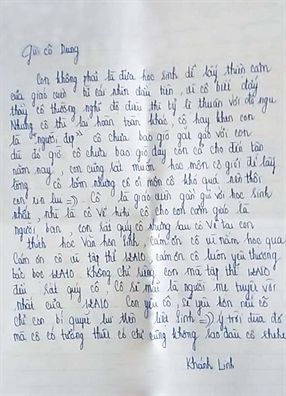 Gửi cô Dung
Con không phải là đứa học sinh dễ lấy thiện cảm
của giáo viên từ cái nhìn đầu tiên, đi cô biết đấy
thầy cô thường nghĩ đó điều thi tỷ lệ thuận với độ ngu
Nhưng cô thì lại hoàn toàn khác, cô hay khen con
là "người đẹp" cô chưa bao giờ gắt gỏng với con
dù đó giờ cô chưa bao giờ dạy con cả cho đến tận
năm nay, con cũng rất muốn học môn cô giỏi để lấy
lòng cô lắm nhưng có môn cô khó quá nên thôi
con Cô là giáo viên gần gũi với học sinh
nhất, như là cô Vẽ cô cho con cảm giác là
người bạn, con rất quý cô nhưng sau cô Vẽ tại con
thích học Văn hơn Sinh, cảm ơn cô vì năm học qua
Cảm ơn cô vì tập thể cảm ơn cô luôn yêu thương
bọc Không chỉ riêng con mà tập thể
đều rất quý cô, Cô sẽ mãi là người mẹ tuyệt vời
nhất của Con yêu cô, sẽ yêu hơn nếu cô
chỉ con bí quyết Sinh ý trời đưa đó
mà cô có tưởng thiệt có chỉ cũng không sao đâu cô hehe
Khánh Linh